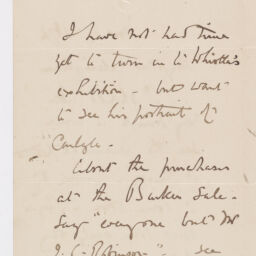 I have not had time
yet to turn in to Whistler's
exhibition - but want
to see his portrait of
Carlyle.
About the purchases
at the Barker Sale.
Say "everyone but Mr
J. C. Robinson". see